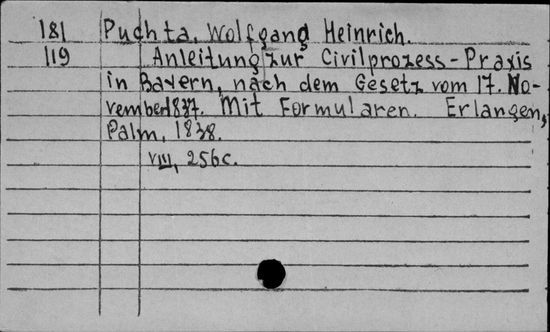 181 Puchta, Wolfgang Heinrich.
119 Anleitung zur Civilprozess-Praxis
in Bayern, nach dem Gesetz vom 17. No-
vember 1837. Mit Formularen. Erlangen,
Palm, 1838.
VIII, 256c.